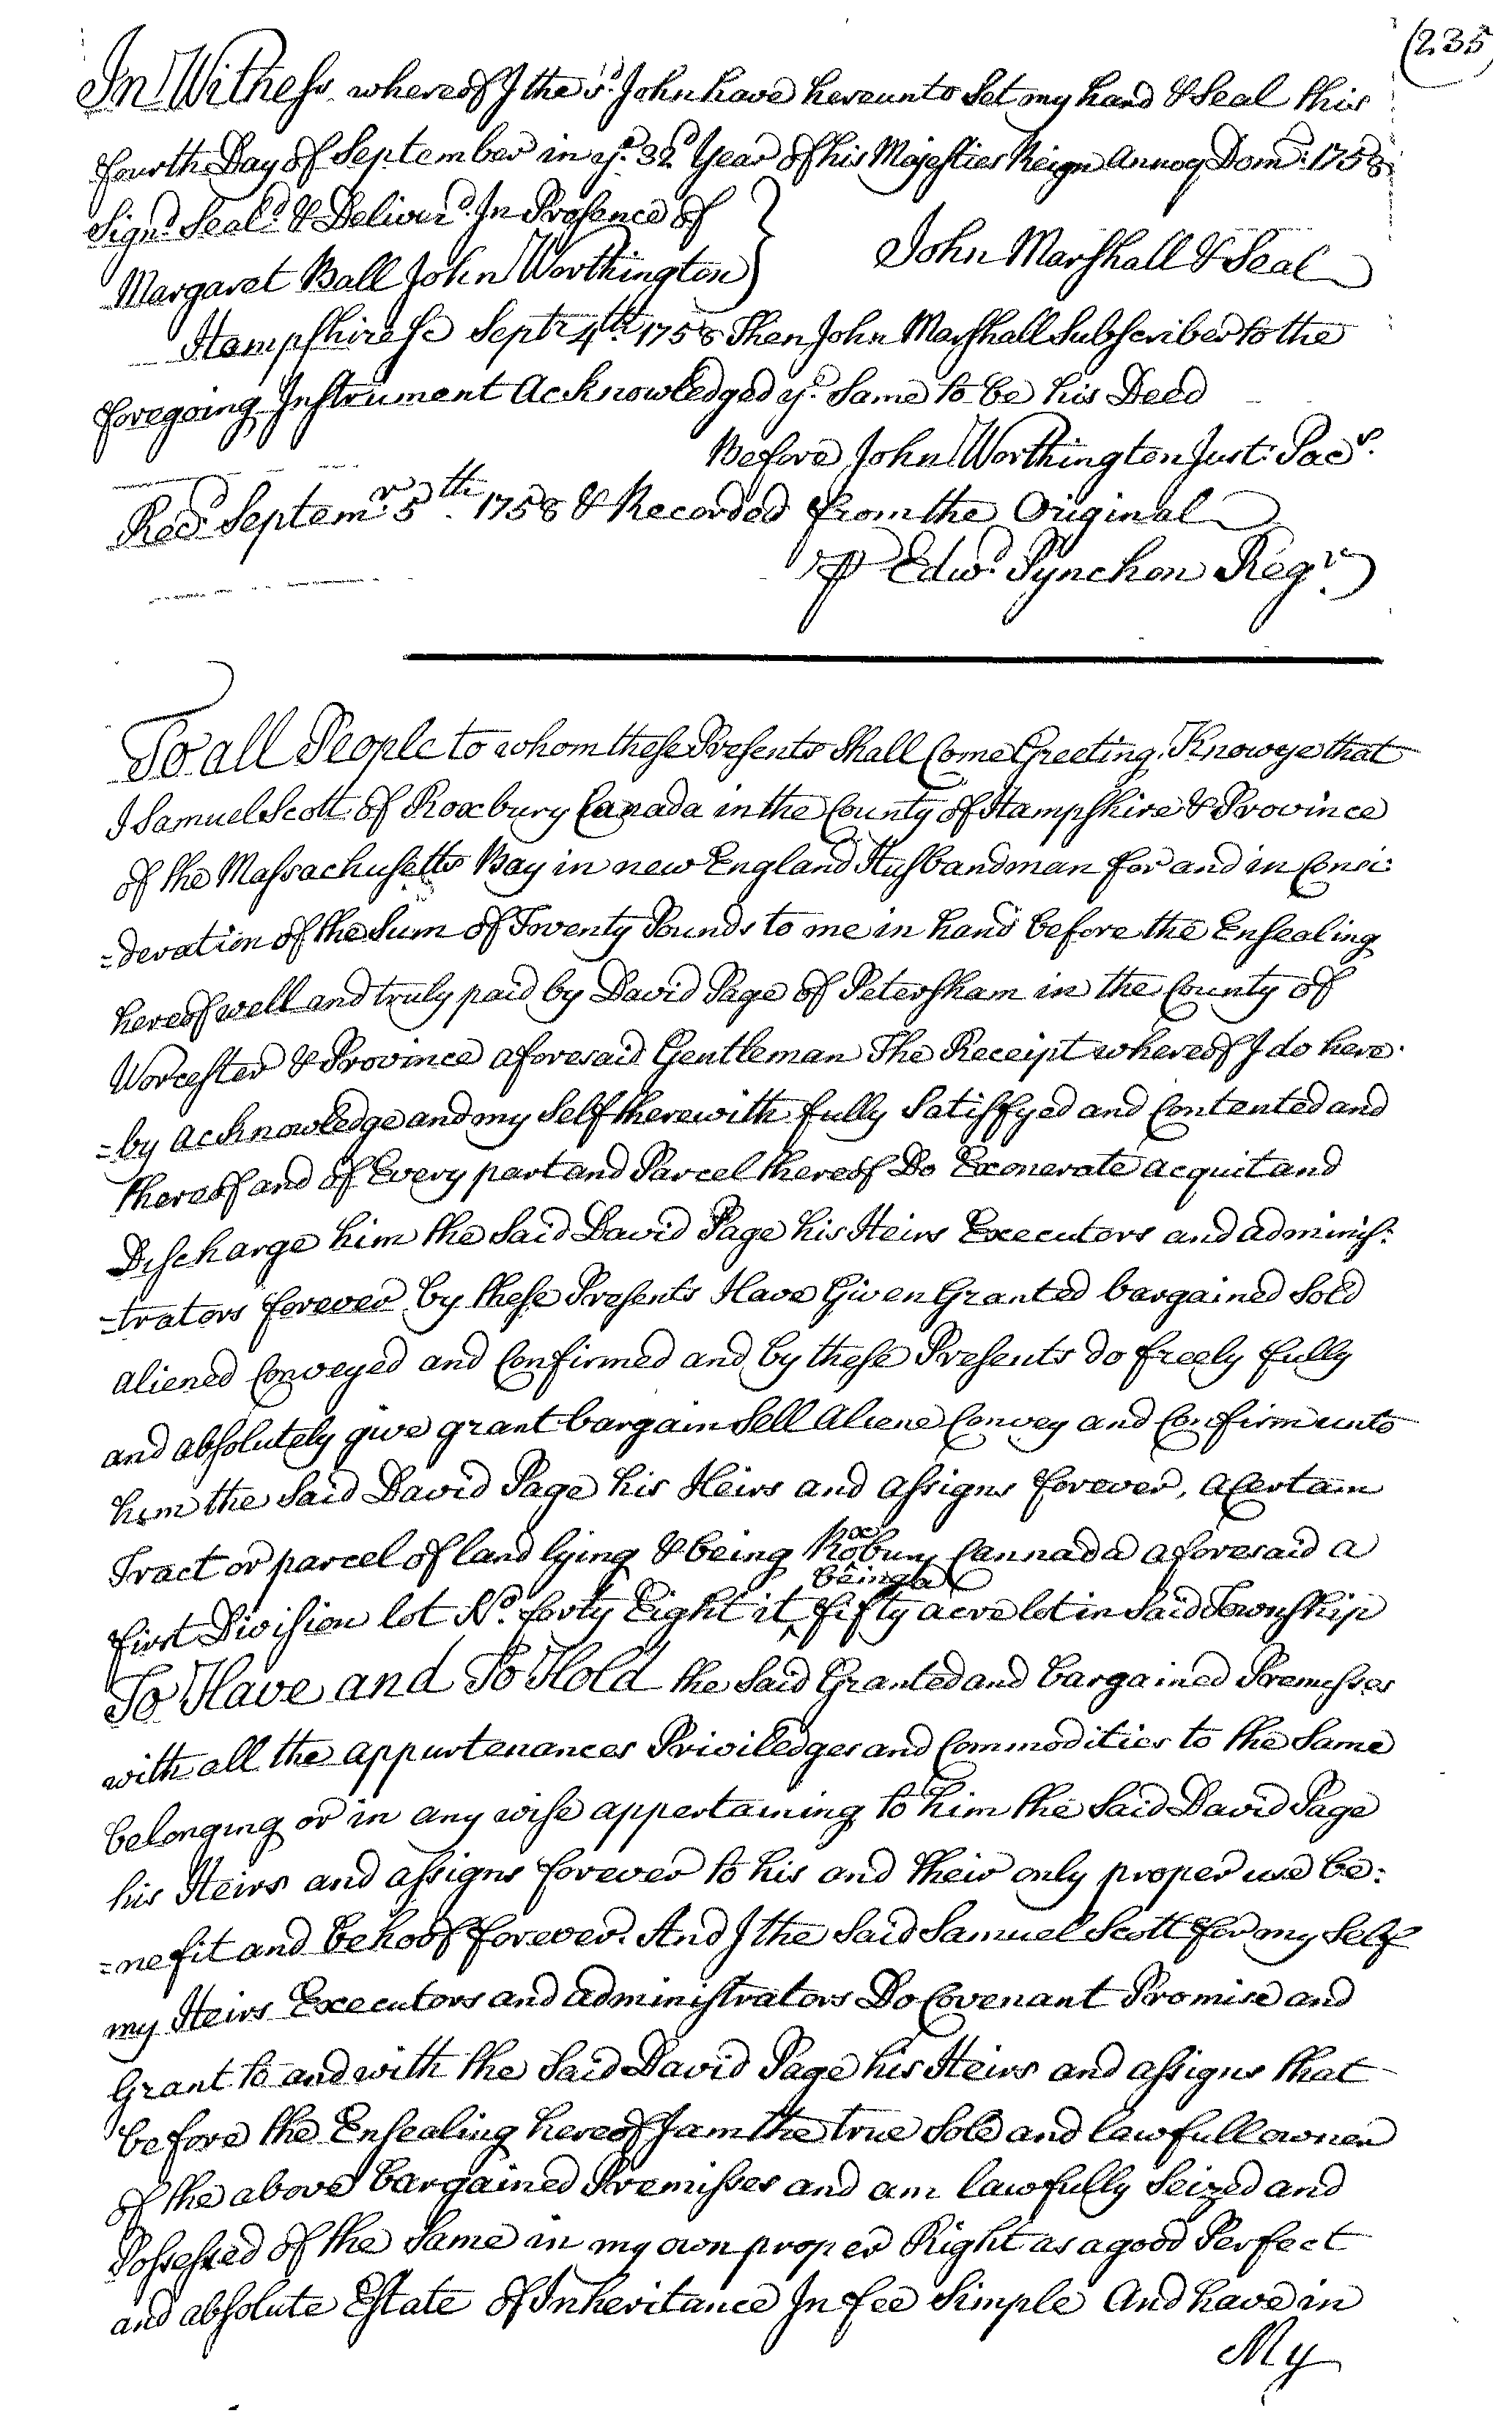 (235
In Witness whereof I the sd. John have hereunto Set my hand & Seal this
fourth Day of September in ye. 32d. Year of his Majesties Reign Annoq Dom: 1758
Signd. Seald. & Deliverd. In Presence of
John Marshall & Seal
Margaret Ball John Worthington
Hampshire Sc Septr 4th. 1758 Then John Marshall Subscriber to the
foregoing Instrument Acknowledged ye. Same to be his Deed
Before John Worthington Just: Pacs.
Recd. Septemr. 5th. 1758 & Recorded from the Original
P Edwd. Pynchon Regr.
To all People to whom these Presents Shall Come Greeting. Know ye that
I Samuel Scott of Roxbury Canada in the County of Hampshire & Province
of the Massachusetts Bay in new England Husbandman for and in Consi:
=deration of the Sum of Twenty Pounds to me in hand before the Ensealing
hereof well and truly paid by David Page of Petersham in the County of
Worcester & Province aforesaid Gentleman The Receipt whereof I do here
=by acknowledge and my Self therewith fully Satisfyed and Contented and
thereof and of Every part and Parcel thereof Do Exonerate acquit and
Discharge him the Said David Page his Heirs Executors and adminis:
=trators forever by these Presents Have Given Granted bargained Sold
aliened Conveyed and Confirmed and by these Presents do freely fully
and absolutely give grant bargain Sell Aliene Convey and Confirm unto
him the Said David Page his Heirs and assigns forever, a Certain
Tract or parcel of land lying & being Roxbury Cannada aforesaid a
first Division lot No. forty Eight it being a fifty acre lot in Said Township
To Have and To Hold the Said Granted and bargained Premisses
with all the appurtenances Priviledges and Commodities to the Same
belonging or in any wise appertaining to him the Said David Page
his Heirs and assigns forever to his and their only proper use be:
=nefit and behoof forever. And I the Said Samuel Scott for my Self
my Heirs Executors and administrators Do Covenant Promise and
Grant to and with the Said David Page his Heirs and assigns that
before the Ensealing hereof I am the true Sole and lawfull owner
of the above bargained Premisses and am lawfully Seized and
Possessed of the Same in my own proper Right as a good Perfect
and absolute Estate of Inheritance In fee Simple And have in
My